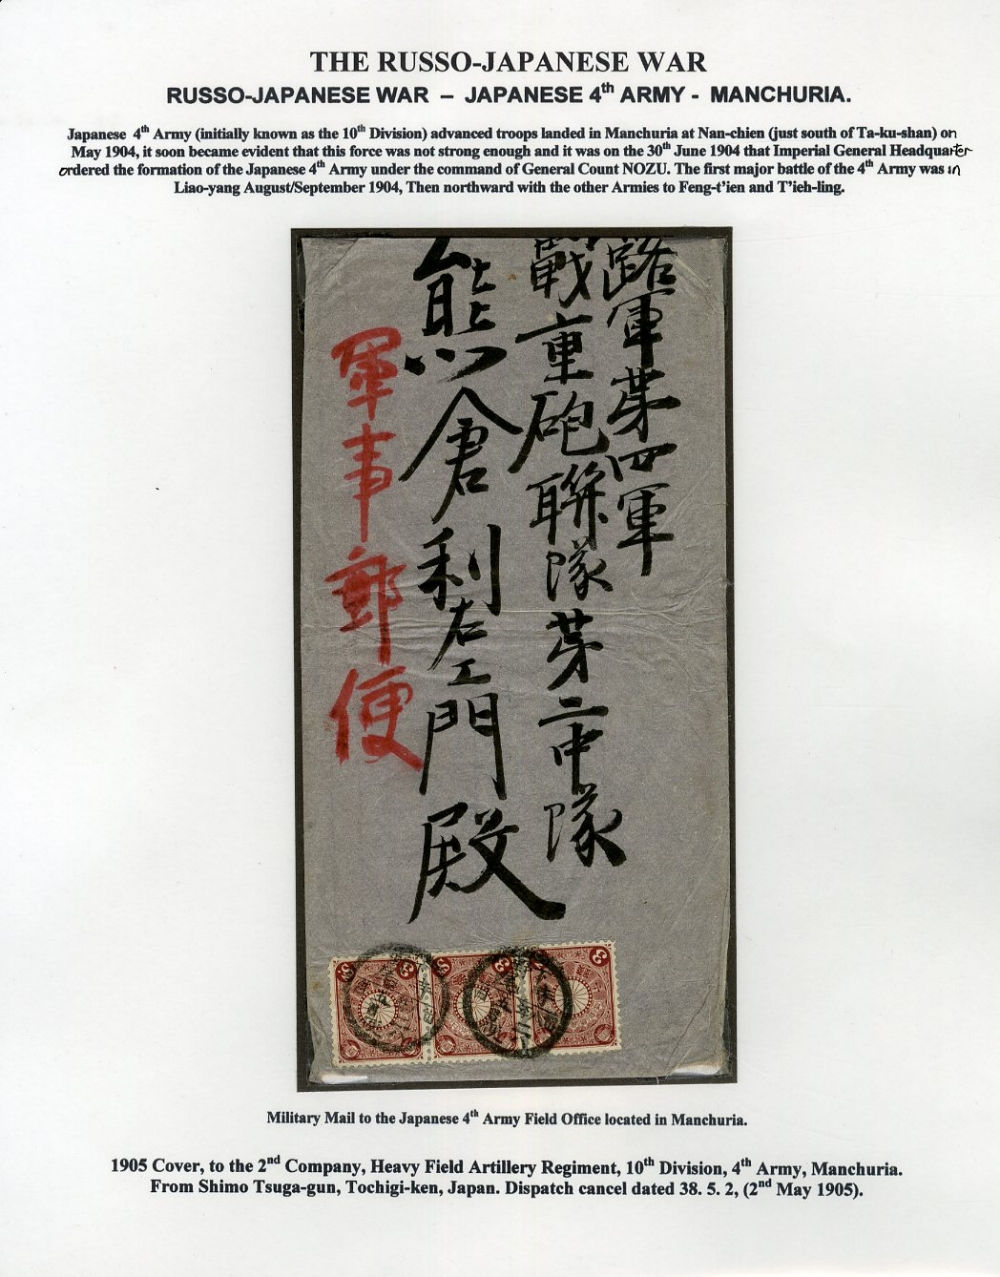 THE RUSSO-JAPANESE WAR
RUSSO-JAPANESE WAR – JAPANESE 4th ARMY - MANCHURIA.
Japanese 4th Army (initially known as the 10th Division) advanced troops landed in Manchuria at Nan-chien (just south of Ta-ku-shan) on
May 1904, it soon became evident that this force was not strong enough and it was on the 30th June 1904 that Imperial General Headquarter
ordered the formation of the Japanese 4th Army under the command of General Count NOZU. The first major battle of the 4th Army was in
Liao-yang August/September 1904, Then northward with the other Armies to Feng-t'ien and T'ieh-ling.
路軍第四軍
戰重砲聯隊第二中隊
熊倉利左エ門殿
軍事郵便
3
3
3
Military Mail to the Japanese 4th Army Field Office located in Manchuria.
1905 Cover, to the 2nd Company, Heavy Field Artillery Regiment, 10th Division, 4th Army, Manchuria.
From Shimo Tsuga-gun, Tochigi-ken, Japan. Dispatch cancel dated 38. 5. 2, (2nd May 1905).